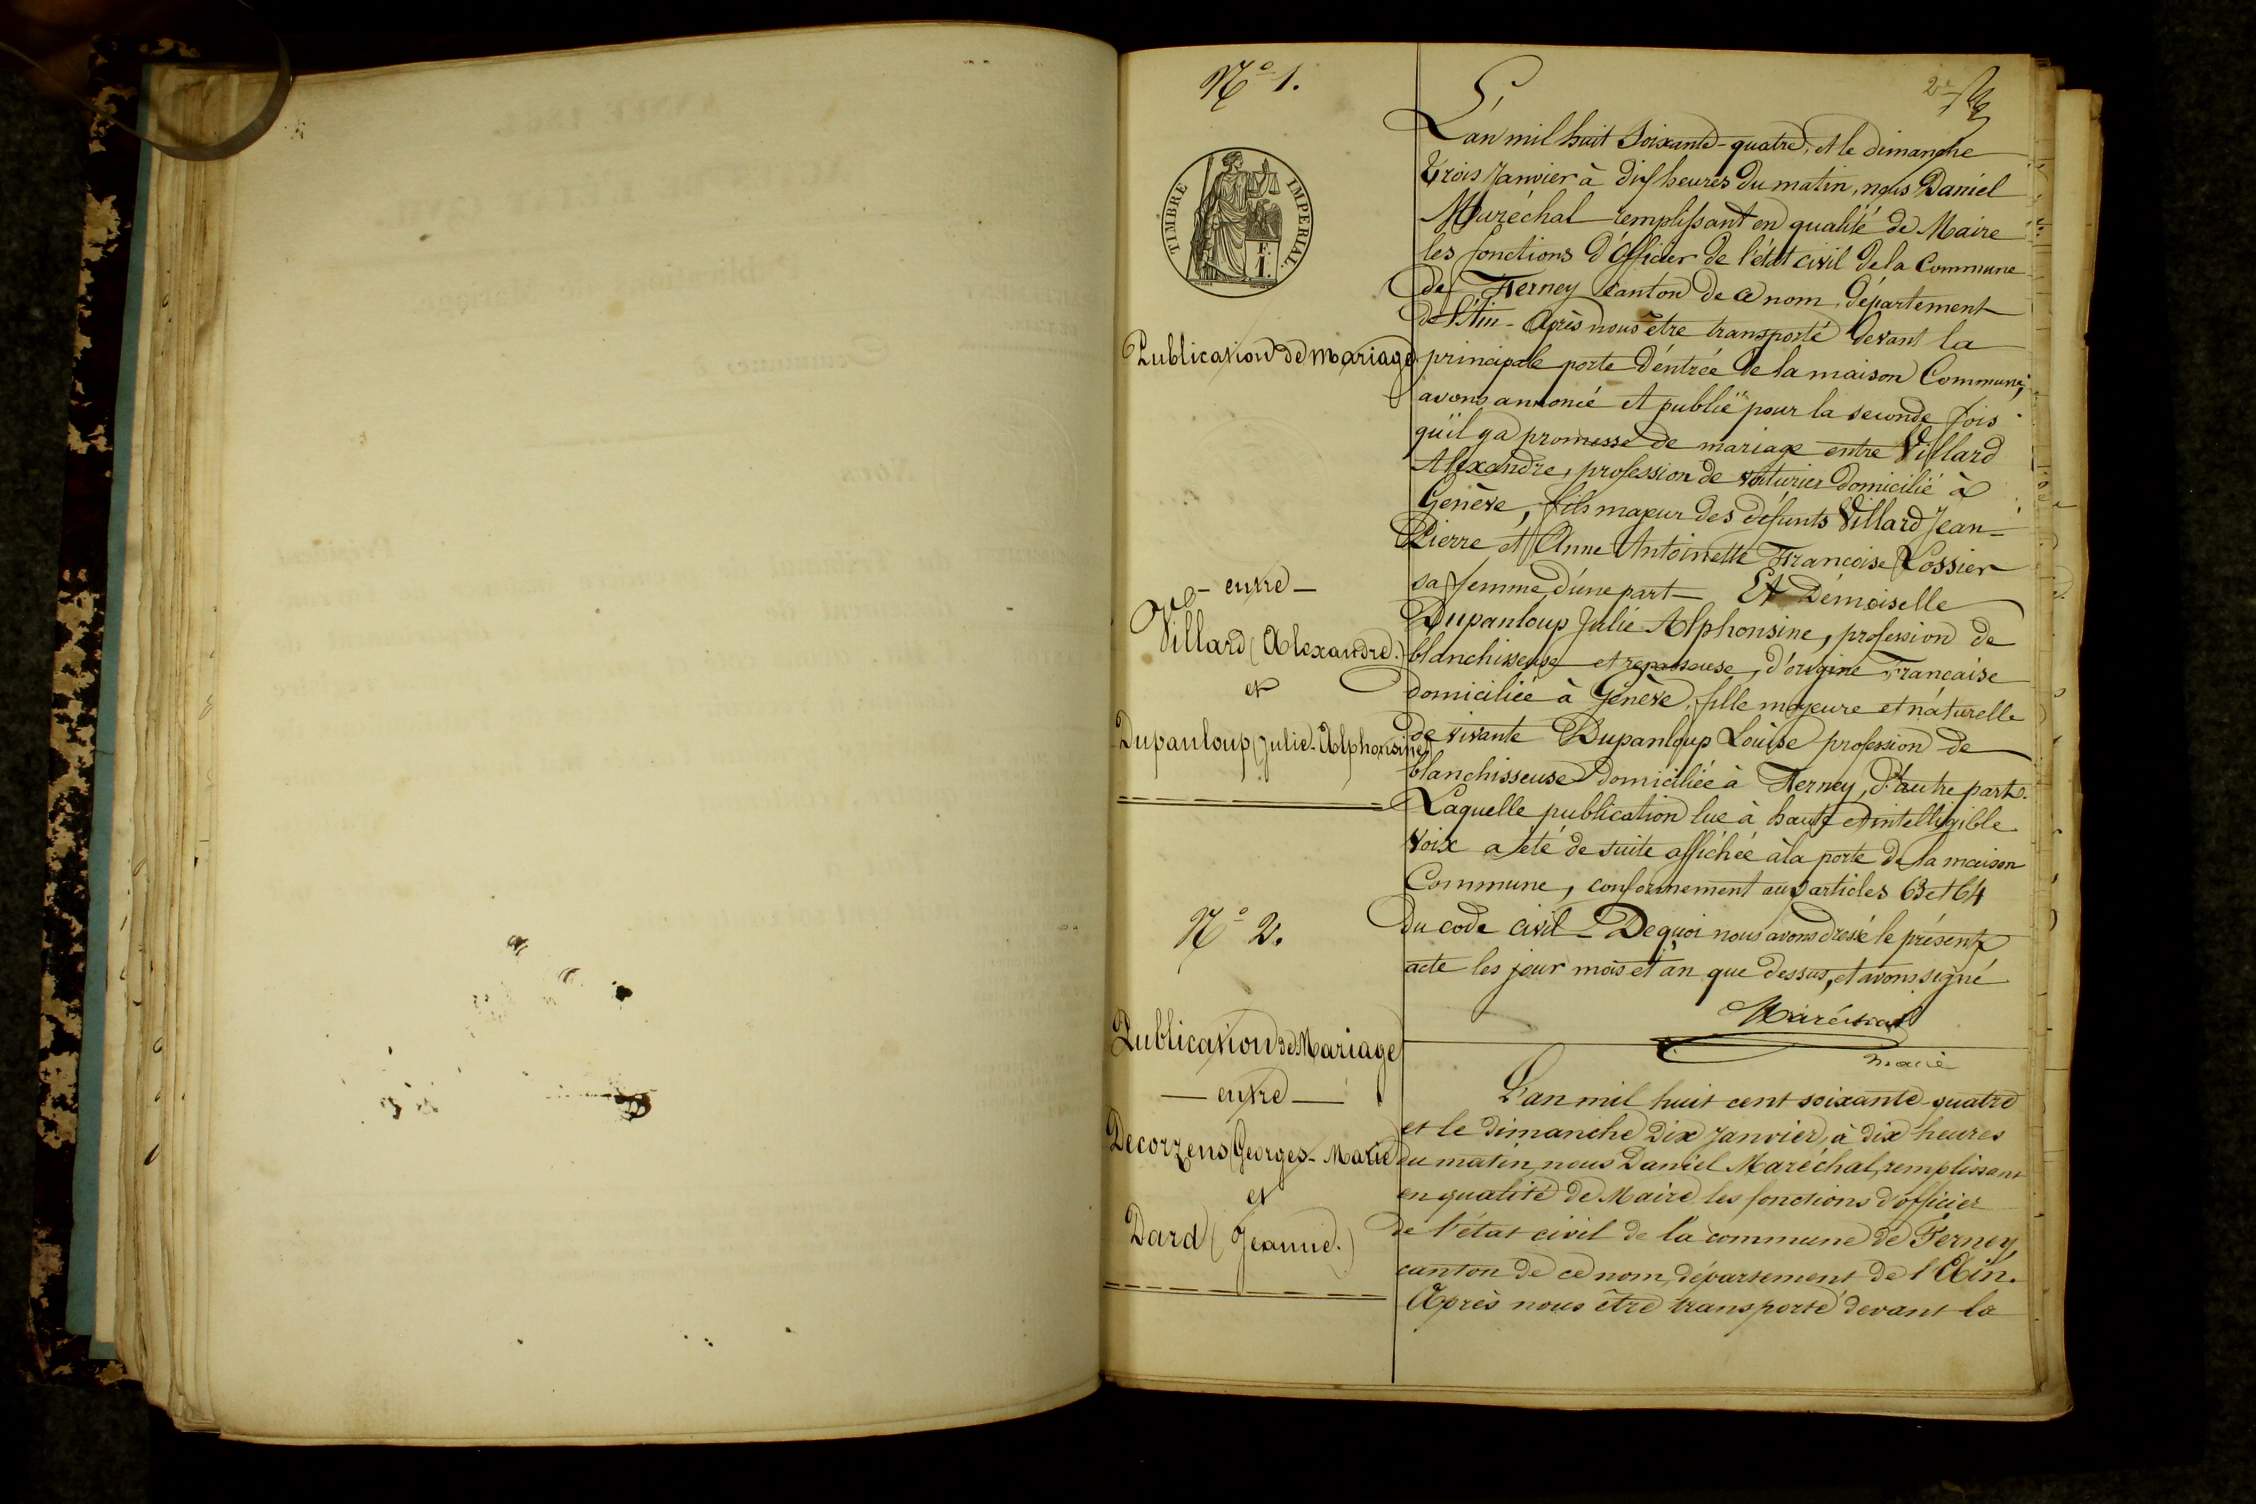 N° 1.
TIMBRE IMPERIAL.
F.
1.
Publication de mariage
- entre -
Villard (Alexandre.)
et
Dupanloup (Julie-Alphonsine)
2e
L'an mil huit soixante-quatre, et le dimanche
trois Janvier à dix heures du matin, nous Daniel
Maréchal remplissant en qualité de Maire
les fonctions d'Officier de l'état civil de la Commune
de Ferney canton de ce nom, département
de l'Ain - Après nous être transporté devant la
principale porte d'entrée de la maison Commune,
avons annoncé et publié pour la seconde fois
qu'il y a promesse de mariage entre Villard
Alexandre, profession de voiturier domicilié à
Genève, fils majeur des défunts Villard Jean-
Pierre et Anne Antoinette Françoise Lossier
sa femme d'une part - Et Demoiselle
Dupanloup Julie Alphonsine, profession de
blanchisseuse et repasseuse, d'origine Française
domiciliée à Genève, fille majeure et naturelle
de vivante Dupanloup Louise profession de
blanchisseuse domiciliée à Ferney, d'autre part.
Laquelle publication lue à haute et intelligible
voix a été de suite affichée à la porte de la maison
Commune, conformément aux articles 63 et 64
du code civil - De quoi nous avons dressé le présent
acte les jour mois et an que dessus, et avons signé
Maréchal
maire
N° 2.
Publication de Mariage
- entre -
Decorzens (Georges-Marie
et
Dard (Jeanne.)
L'an mil huit cent soixante-quatre
et le dimanche dix Janvier, à dix heures
du matin, nous Daniel Maréchal, remplissant
en qualité de Maire les fonctions d'officier
de l'état civil de la commune de Ferney,
canton de ce nom, département de l'Ain.
Après nous être transporté devant la